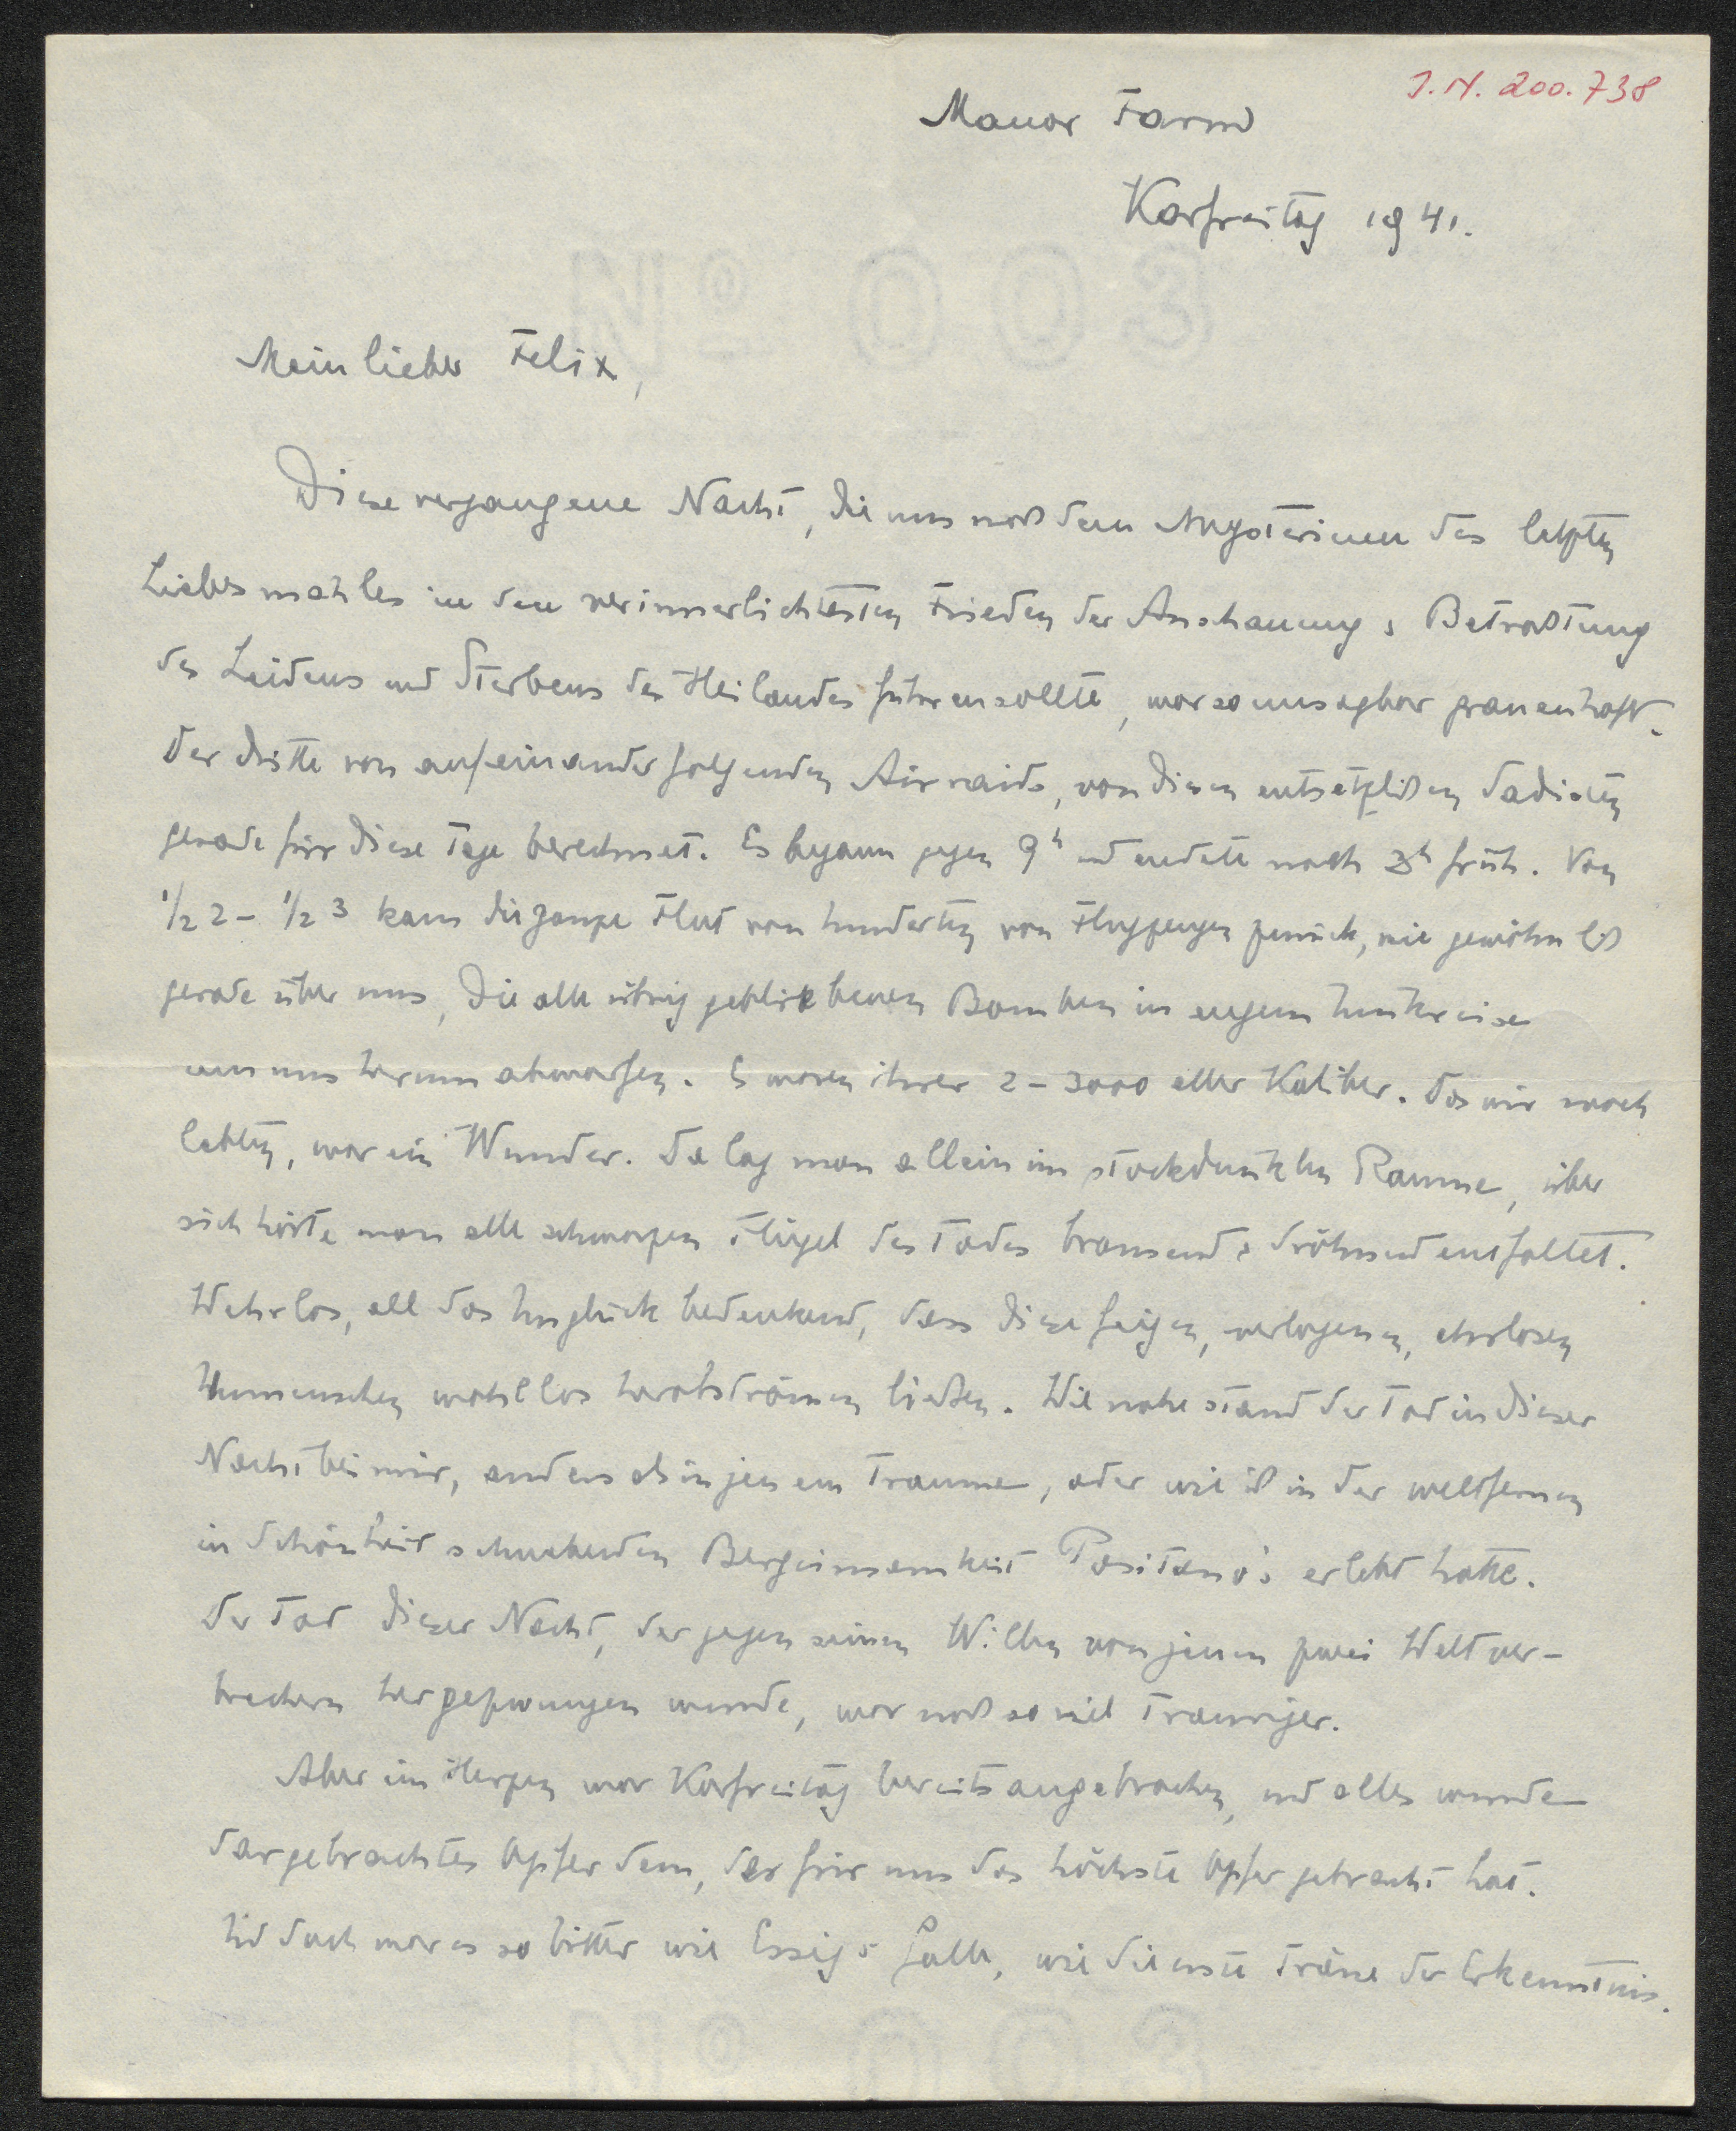 J. N. 200.738
Manor Farm
Karfreitag 1941.
Mein lieber Felix,
Diese vergangene Nacht, die uns nach dem Mysterium des letzten
Liebesmahles in den verinnerlichtesten Frieden der Anschauung & Betrachtung
des Leidens und Sterbens des Heilandes führen sollte, war so unsagbar grauenhaft.
Der dritte von aufeinanderfolgenden Airraids, von diesen entsetzlichen Sadisten
gerade für diese Tage berechnet. Es begann gegen 9h und endete nach 3h früh. Von
1/2 2 – 1/2 3 kam die ganze Flut von hunderten von Flugzeugen zurück, wie gewöhnlich
gerade über uns, die alle übrig gebliebenen Bomben in engem Umkreise
um uns herum abwarfen. Es waren ihrer 2 – 3000 aller Kaliber. Das wir noch
lebten, war ein Wunder. Da lag man allein im stockdunklen Raume, über
sich hörte man alle schwarzen Flügel des Todes brausend & dröhnend entfaltet.
Wehrlos, all das Unglück bedenkend, dass diese feigen, verlogenen, ehrlosen
Unmenschen wahllos herabströmen ließen. Wie nahe stand der Tod in dieser
Nacht bei mir, anders als in jenem Traume, oder wie ich in der weltfernen
in Schönheit schwebenden Bergeinsamkeit Positano's erlebt hatte.
Der Tod dieser Nacht, der gegen seinen Willen von jenen zwei Weltver-
brechern hergezwungen wurde, war noch so viel trauriger.
Aber im Herzen war Karfreitag bereits angebrochen, und alles wurde
dargebrachtes Opfer dem, der für uns das höchste Opfer gebracht hat.
Und doch war es so bitter wie Essig & Galle, wie die erste Träne der Erkenntnis.